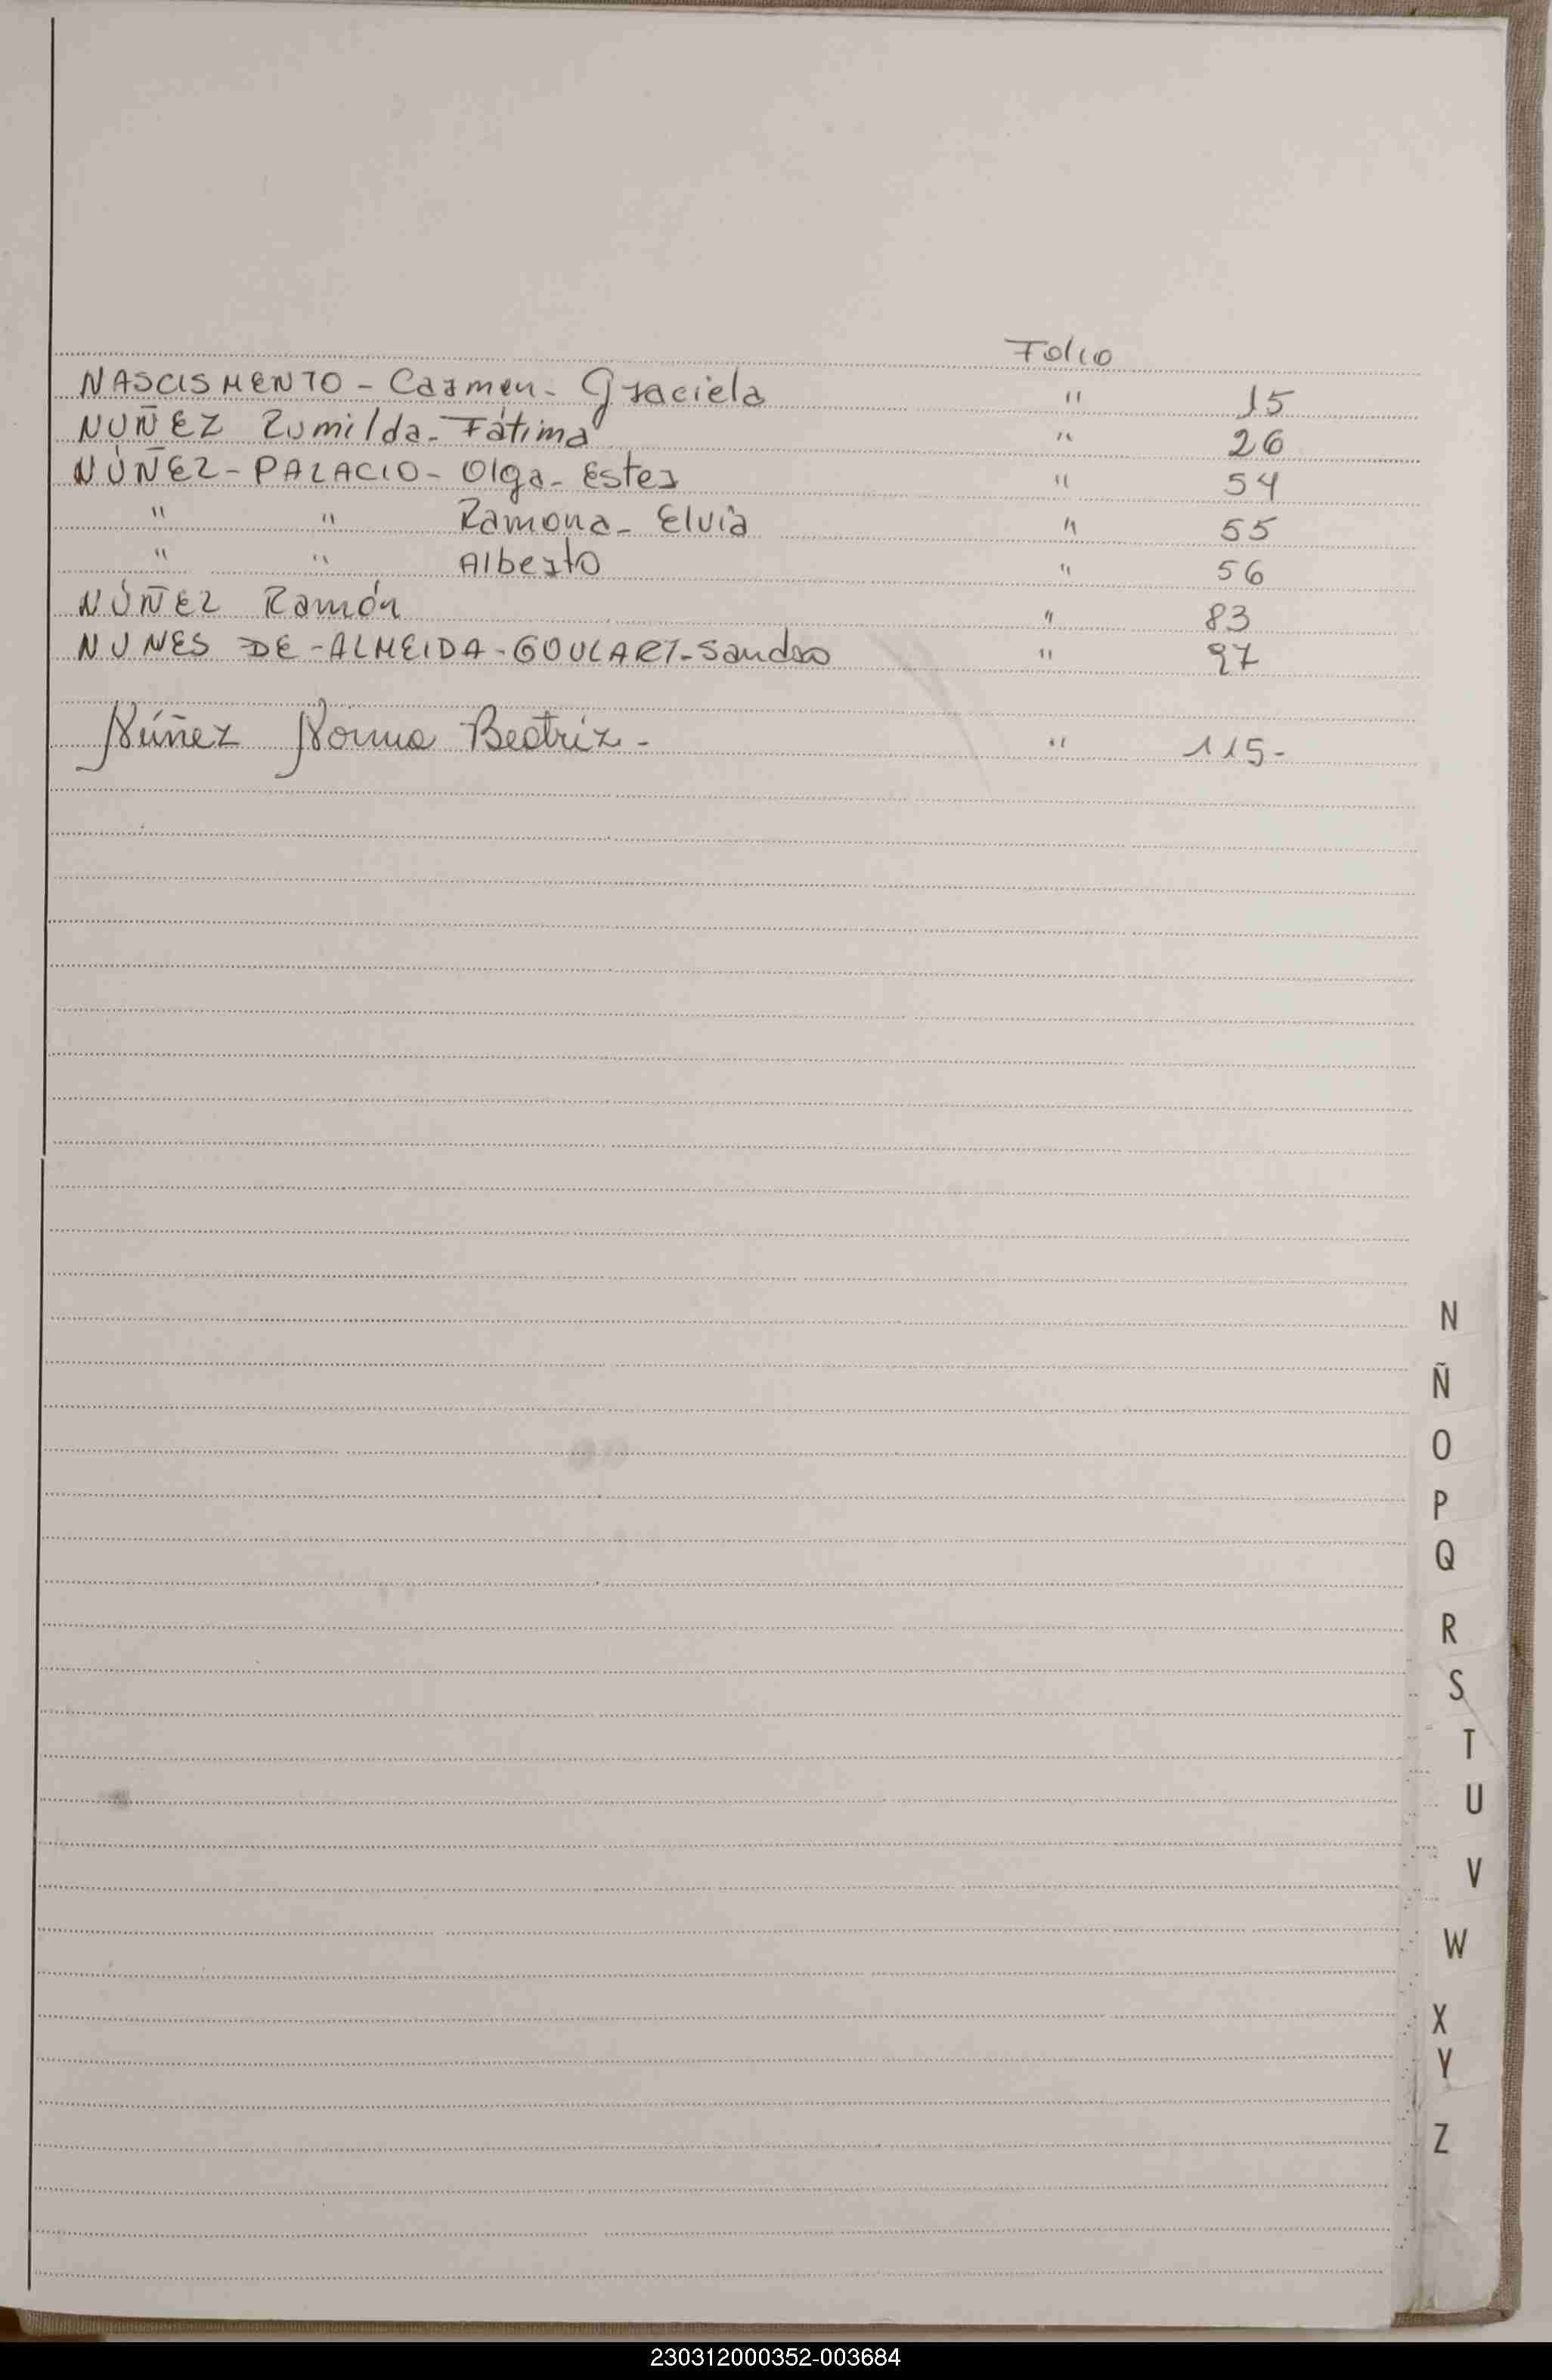 Folio
NASCISMENTO - Carmen - Graciela " 15
NUÑEZ Zumilda - Fátima " 26
NÚÑEZ - PALACIO - Olga - Ester " 54
" " Ramona - Elvia " 55
" " Alberto " 56
NÚÑEZ Ramón " 83
NUNES DE - ALMEIDA - GOULART - Sandro " 97
Núñez Norma Beatriz - " 115 -
N
Ñ
O
P
Q
R
S
T
U
V
W
X
Y
Z
230312000352-003684